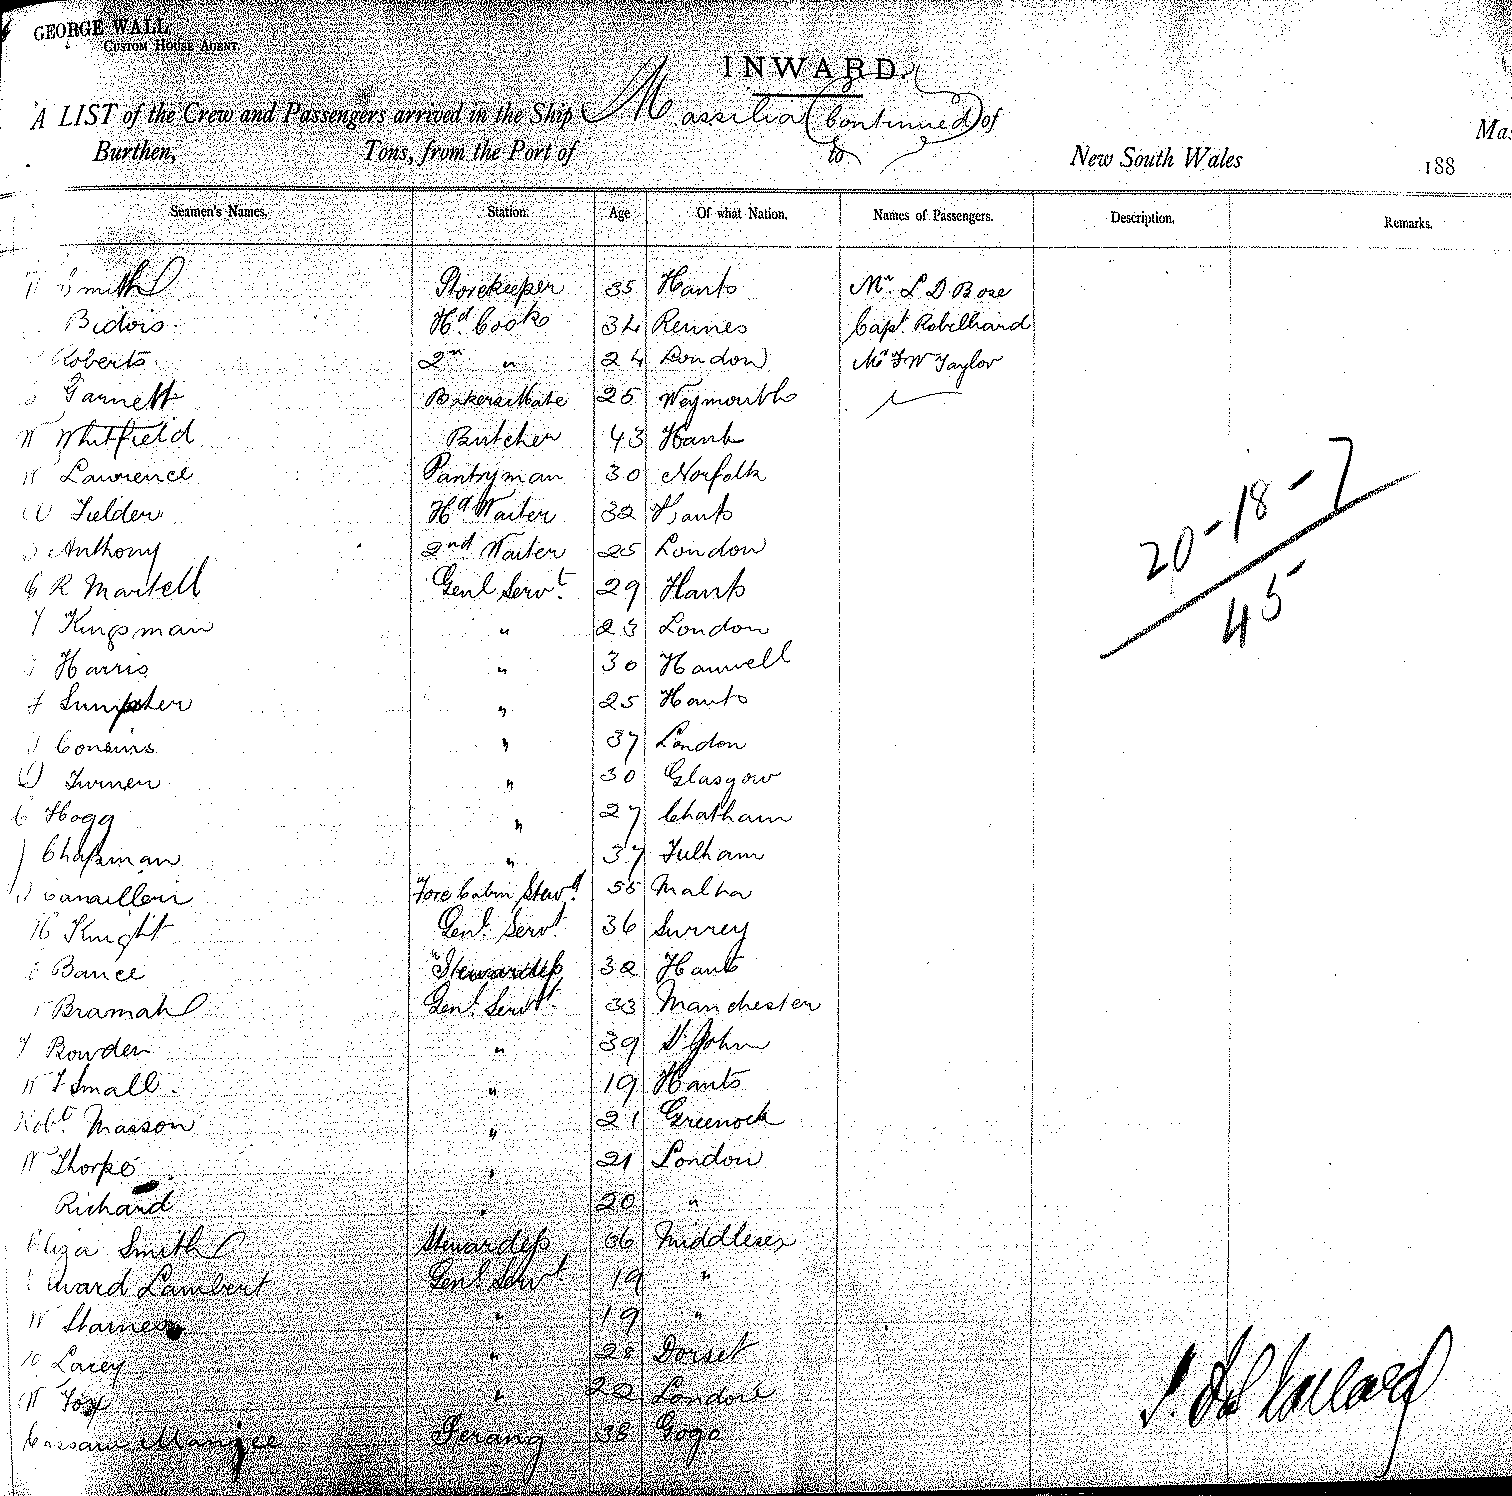 GEORGE WALL
CUSTOM HOUSE AGENT.
INWARD.
A LIST of the Crew and Passengers arrived in the Ship Massilia (Continued) of
Burthen, Tons, from the Port of to New South Wales 188
Seamen's Names. Station. Age Of what Nation. Names of Passengers. Description. Remarks.
Smith Storekeeper 35 Hants Mr L D Bose
Bidois Hd Cook 34 Rennes Capt. Robelhard
Roberts 2nd " 24 London Mr F W Taylor
Garnett Bakers Mate 25 Weymouth
W Whitfield Butcher 43 Hants
W Lawrence Pantryman 30 Norfolk
W Fielder Hd Waiter 32 Hants
Anthony 2nd Waiter 25 London
C R Martell Genl Servt. 29 Hants
Kingsman " 23 London
Harris " 30 Hanwell
Sumpter " 25 Hants
Cousins " 37 London
Turner " 30 Glasgow
Hogg " 27 Chatham
Chapman " 37 Fulham
Fore Cabin Stewd. 55 Malta
H Knight Genl. Servt 36 Surrey
Bance Stewardess 32 Hants
Bramah Genl. Servt. 33 Manchester
Bowden " 39 St John
W F Small " 19 Hants
Robt Masson " 21 Greenock
W Thorpe " 21 London
Richard " 20 "
Eliza Smith Stewardess 36 Middlesex
Edward Lambert Genl. Servt 19 "
W " 19 "
Lacey " 28 Dorset
W Fox " 22 London
Cassam Manjee Serang 38 Gogo
20-18-7
45